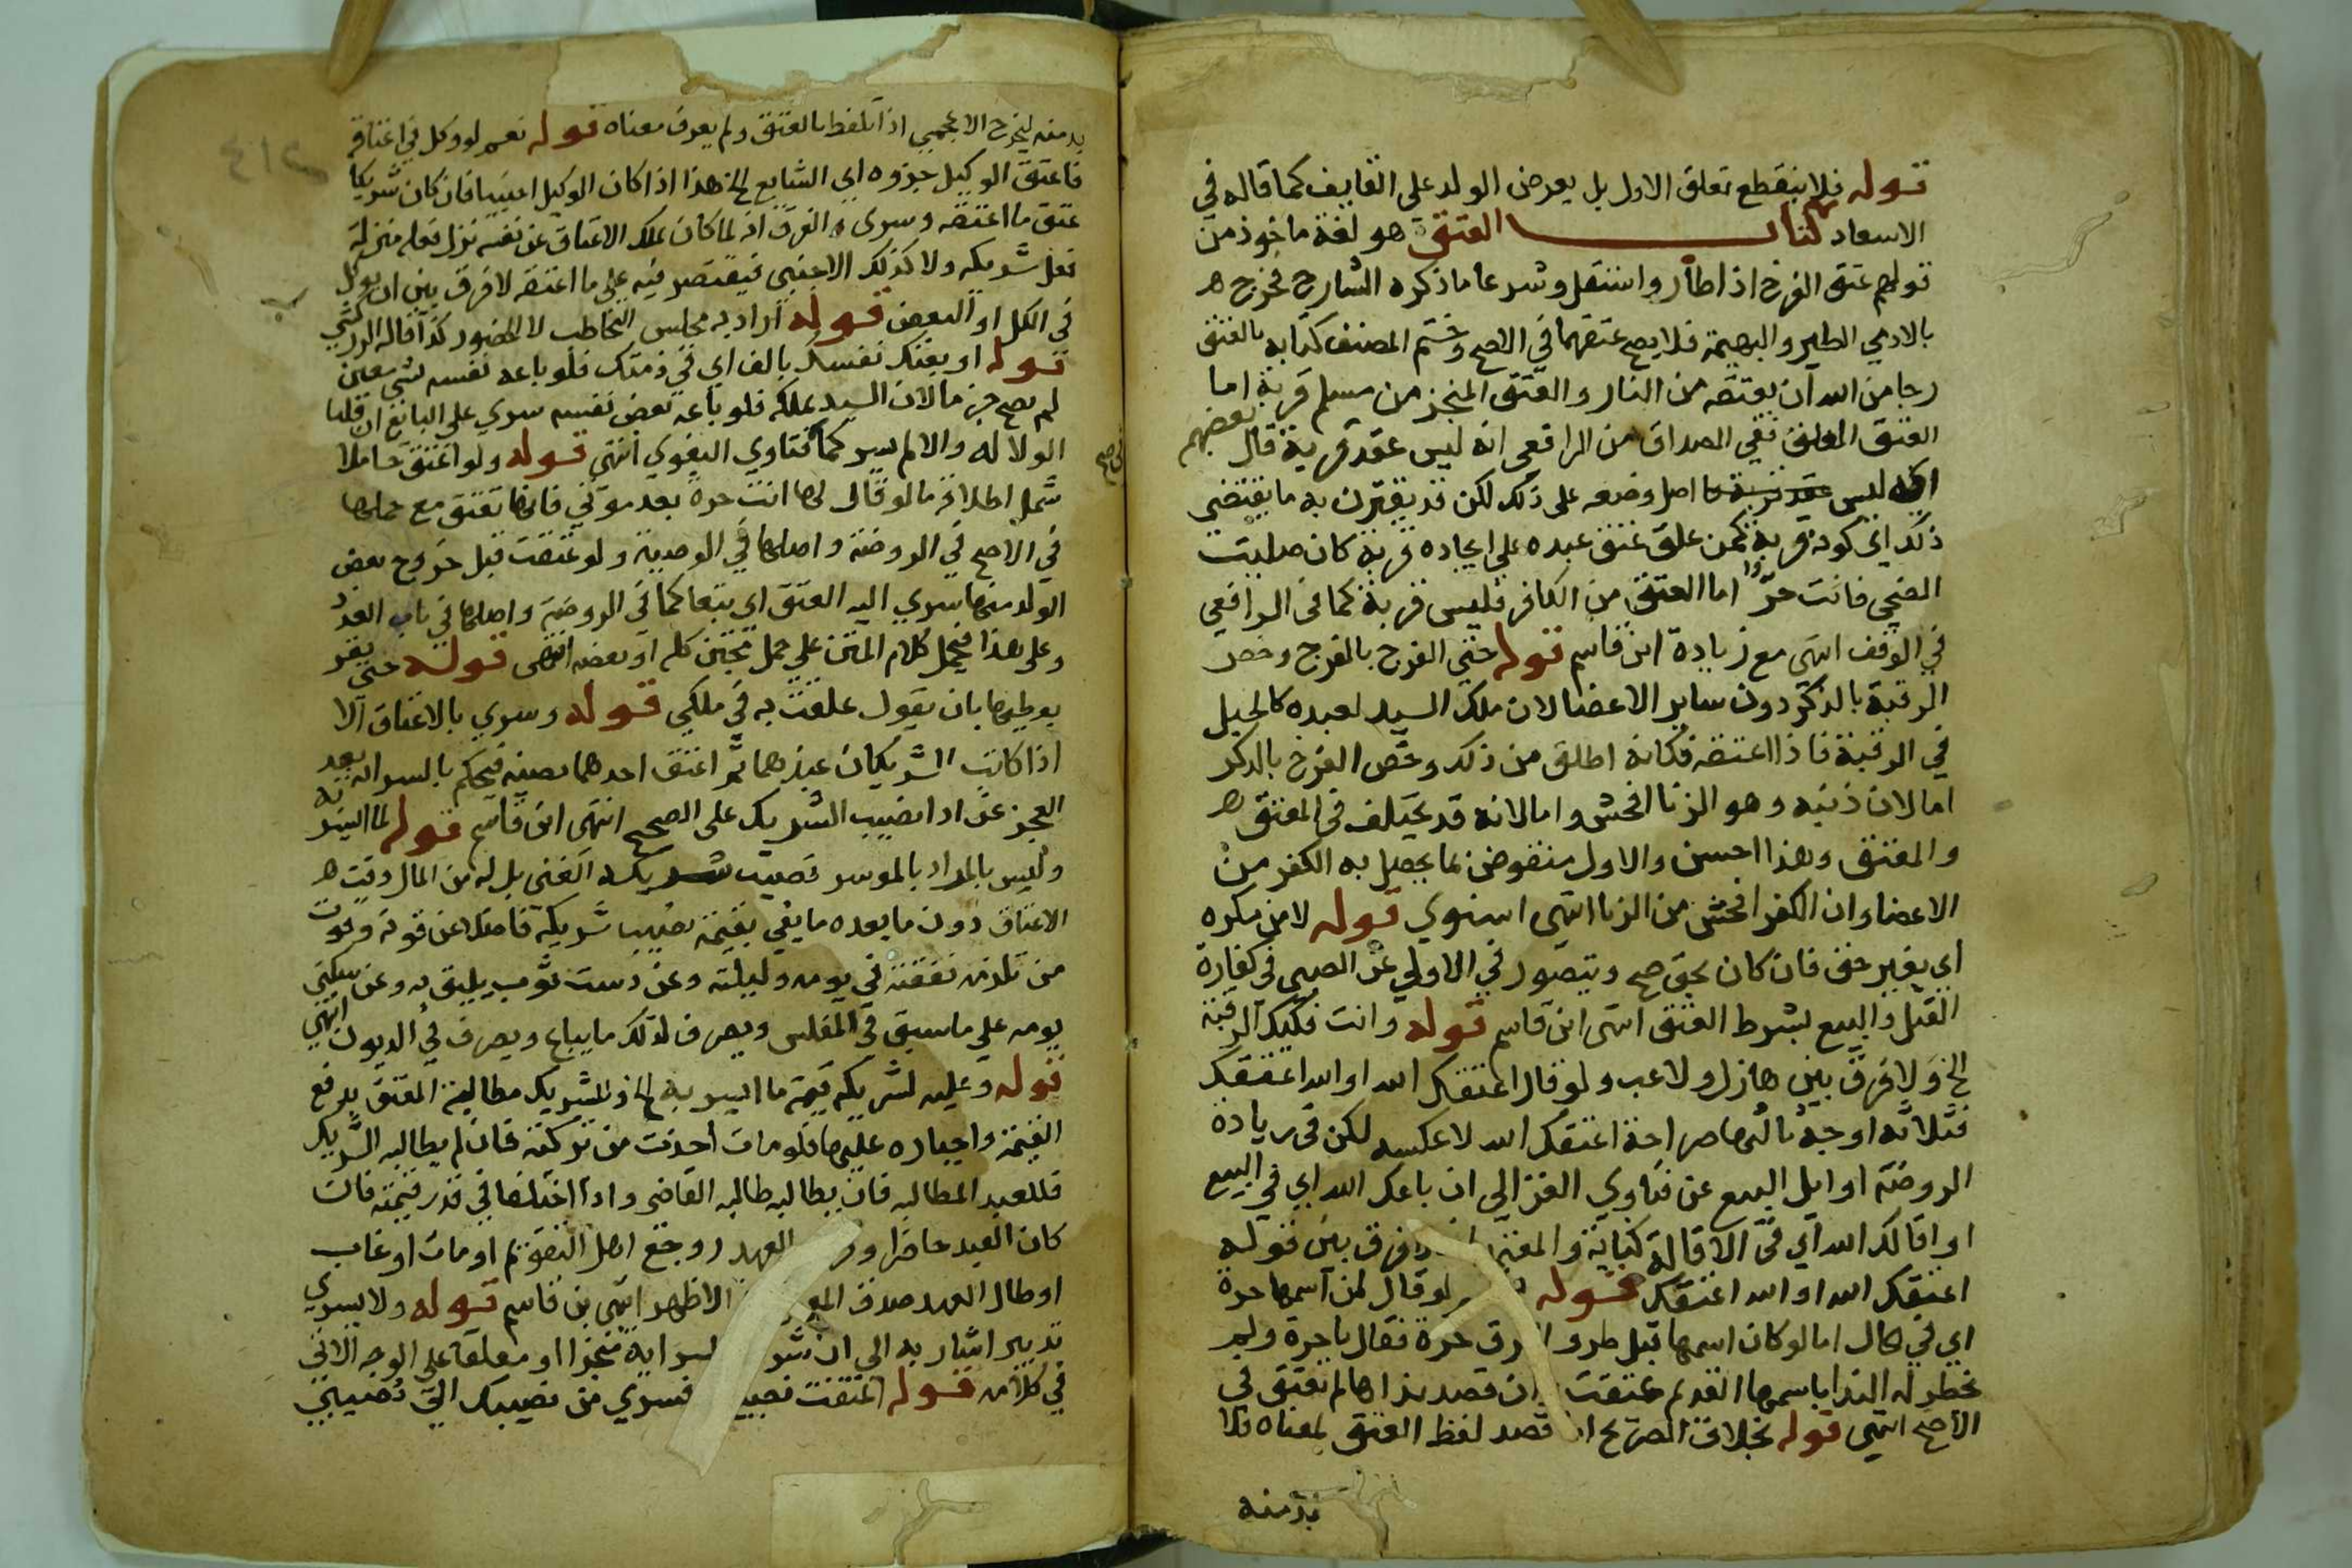 قوله فلا ينقطع تعلق الاول بل يعرض الولد على القايف كما قاله في
الاسعاد كتاب العتق هو لغة ماخوذ من
قولهم عتق الفرخ اذا طار واستقل وشرعا ما ذكره الشارح فخرج
بالادمي الطير والبهيمة فلا يصح عتقهما في الاصح وختم المصنف كتابه بالعتق
رجا من الله ان يعتقه من النار والعتق المنجز من مسلم قربة اما
العتق المعلق ففي الصداق من الرافعي انه ليس عقد قربة قال بعضهم
اي ليس اصل وضعه على ذلك لكن قد يقترن به ما يقتضي
ذلك اي كونه قربة كمن علق عتق عبده على ايجاده قربة كان صليت
الضحى فانت حر اما العتق من الكافر فليس قربة كما في الرافعي
في الوقف انتهى مع زيادة ابن قاسم قوله حتى الفرج بالفرج وخص
الرقبة بالذكر دون ساير الاعضا لان ملك السيد لعبده كالحبل
في الرقبة فاذا اعتقه فكانه اطلق من ذلك وخص الفرج بالذكر
اما لان ذنبه وهو الزنا افحش واما لانه قد يختلف في المعتق
والمعتق وهذا احسن والاول منقوض بما يحصل به الكفر من
الاعضا وان الكفر افحش من الزنا انتهى اسنوي قوله لا من مكره
اي بغير حق فان كان بحق صح ويتصور في الاولى عن الصبي في كفارة
القتل والبيع بشرط العتق انتهى ابن قاسم قوله وانت فكيك الرقبة
الخ ولا فرق بين هازل ولاعب ولو قال اعتقك الله او الله اعتقك
فثلاثة اوجه ثالثها صراحة اعتقك الله لا عكسه لكن في زيادة
الروضة اوايل البيع عن فتاوي الغزالي ان باعك الله اي في البيع
او اقالك الله اي في الاقالة كناية فرق بين قوله
اعتقك الله او الله اعتقك قوله لو قال لمن اسمها حرة
اي في الحال اما لو كان اسمها قبل طرو الرق حرة فقال يا حرة ولم
يخطر له الندا باسمها القديم عتقت وان قصد نداها لم تعتق في
الاصح انتهى قوله بخلاف الصريح ان قصد لفظ العتق لمعناه فلا
بد منه
بد منه ليخرج الاعجمي اذا تلفظ بالعتق ولم يعرف معناه قوله نعم لو وكل في اعتاقه
فاعتق الوكيل جزوه اي الشايع الخ هذا اذا كان الوكيل اجنبيا فان كان شريكا
عتق ما اعتقه وسرى والفرق انه لما كان يملك الاعتاق عن نفسه نزل فعله منزلة
فعل شريكه ولا كذلك الاجنبي فيقتصر فيه على ما اعتقه لا فرق بين ان يوكل
في الكل او البعض قوله اراد به مجلس التخاطب لا الحضور كذا قاله الزركشي
قوله او بعتك نفسك بالف اي في ذمتك فلو باعه نفسه بشي معين
لم يصح جزما لان السيد يملكه فلو باعه بعض نفسه سرى على البائع ان قلنا
الولا له والا لم يسر كما في فتاوي البغوي انتهى قوله ولو اعتق حاملا
شمل اطلاقه ما لو قال لها انت حرة بعد موتي فانها تعتق مع حملها
في الاصح في الروضة واصلها في الوصية ولو عتقت قبل خروج بعض
الولد منها سرى اليه العتق اي تبعا كما في الروضة واصلها في باب العدد
وعلى هذا فيحمل كلام المتن على حمل مجتن كله او بعضه انتهى قوله حتى يقر
بوطيها بان يقول علقت به في ملكي قوله وسرى بالاعتاق الا
اذا كاتب الشريكان عبدهما ثم اعتق احدهما نصيبه فيحكم بالسراية بعد
العجز عن ادا نصيب الشريك على الصحيح انتهى ابن قاسم قوله لما ايسر به
وليس المراد بالموسر الغني بل له من المال وقت
الاعتاق دون ما بعده ما يفي بقيمة نصيب شريكه فاضلا عن قوته وقوت
من تلزمه نفقته في يومه وليلته وعن دست ثوب يليق به وعن سكنى
يومه على ما سبق في المفلس ويصرف لذلك ما يباع ويصرف في الديون انتهى
قوله وعليه لشريكه قيمة ما ايسر به الخ وللشريك مطالبة المعتق بدفع
القيمة واجباره عليها فلو مات اخذت من تركته فان لم يطالبه الشريك
فللعبد المطالبه فان لم يطالبه طالبه القاضي واذا اختلفا في قدر قيمته فان
كان العبد حاضرا العهد روجع اهل التقويم او مات او غاب
او طال العهد صدق الاظهر انتهى بن قاسم قوله ولا يسري
تدبير اشار به الى ان السراية منجزا او معلقا على الوجه الاتي
في كلامه قوله اعتقت فسرى من نصيبك الى نصيبي